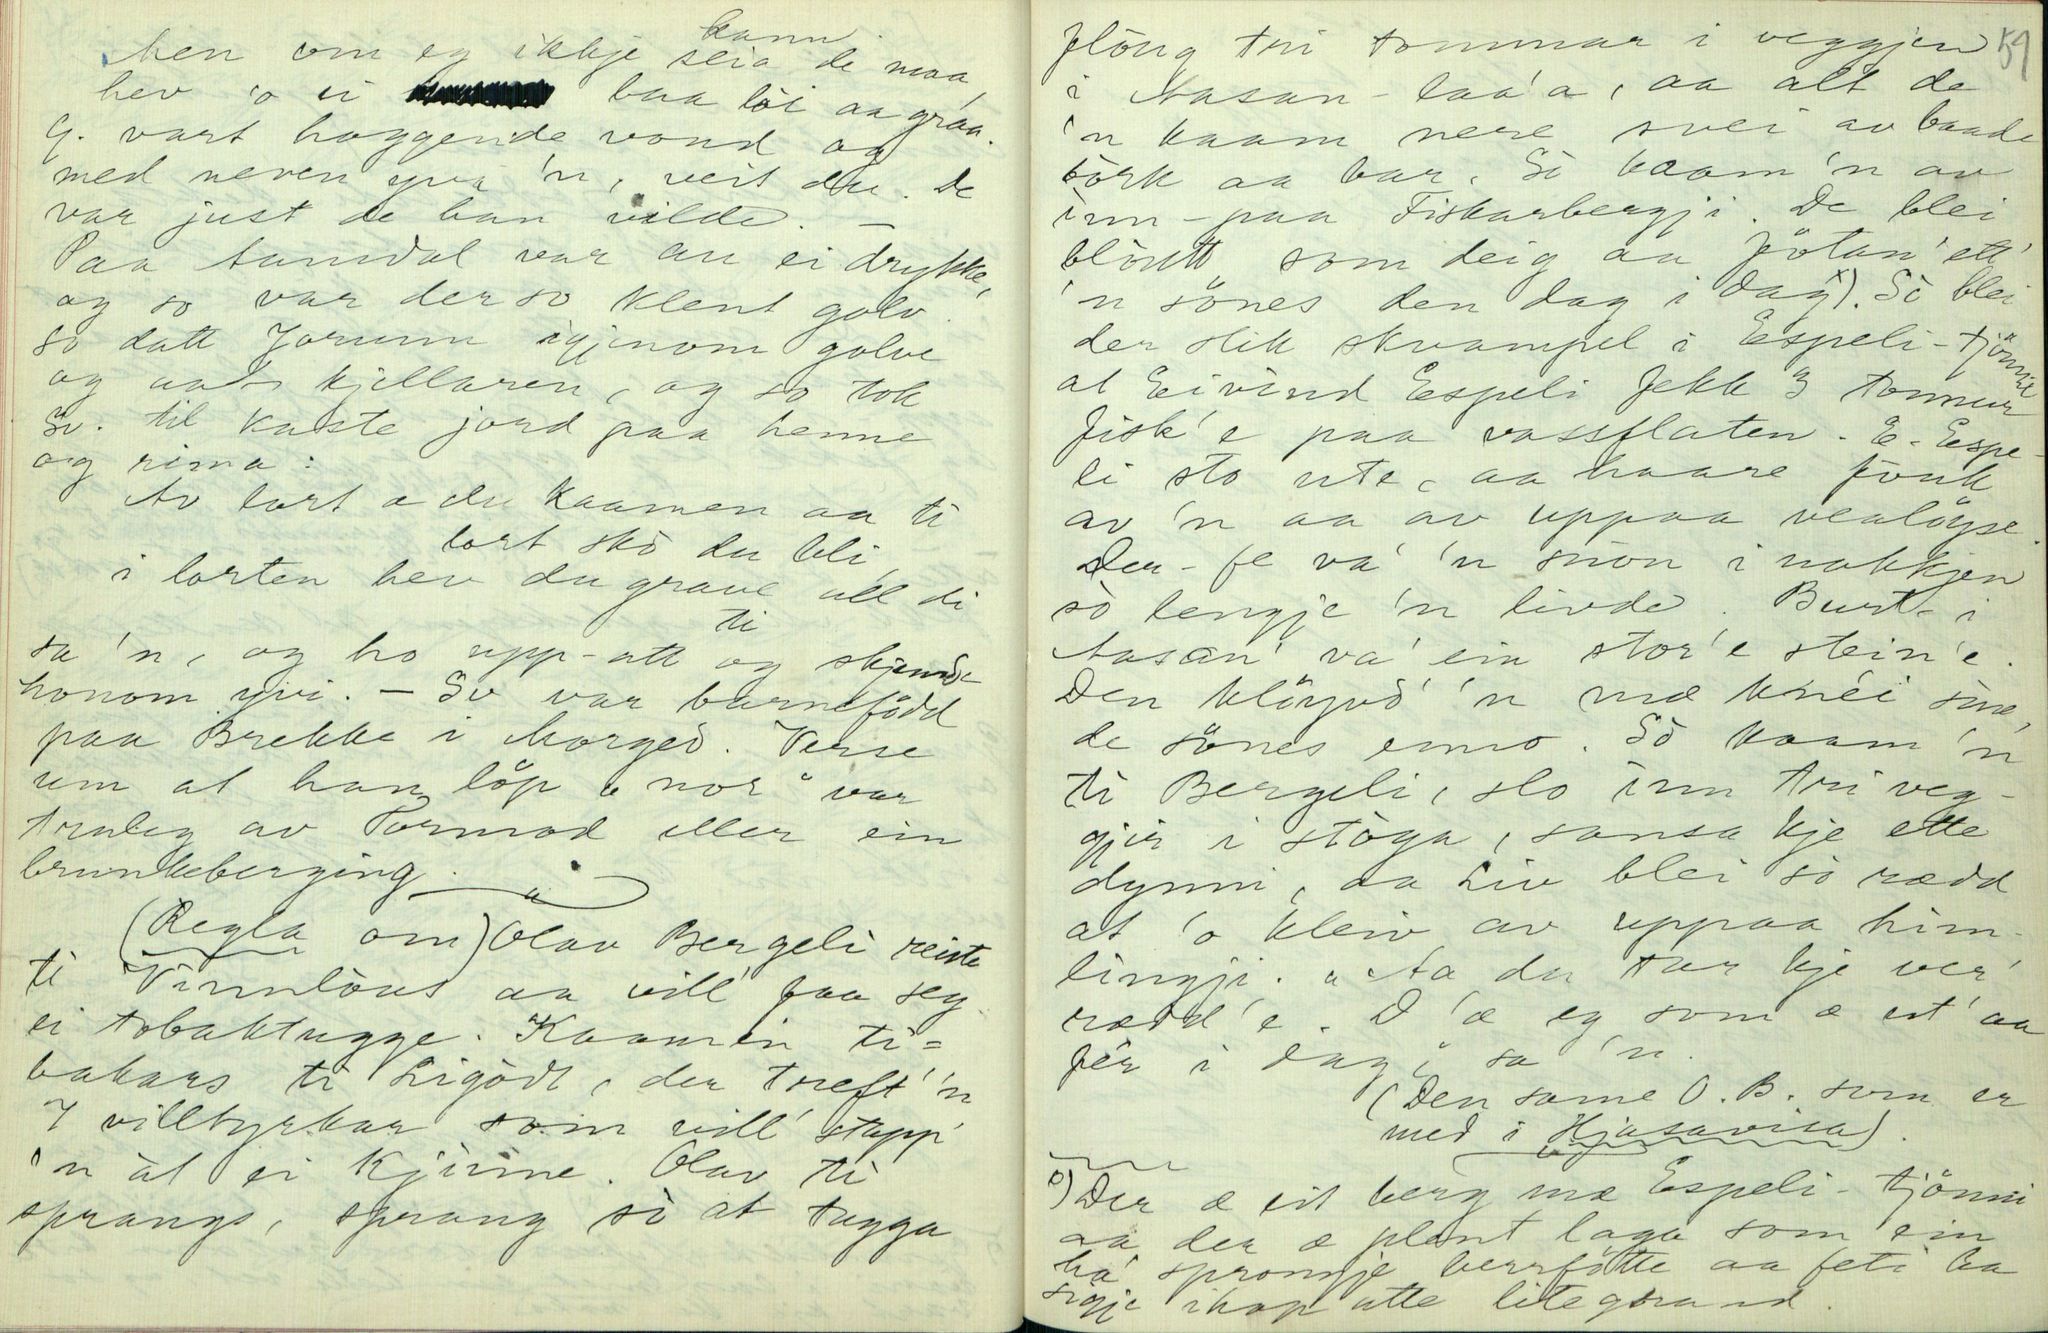 kann
Men om eg ikkje seia de maa
hev 'o ei baa löi aa gráa.
G. vart hoggende vond og
med neven yvi 'n, veit du. De
var just de han vilde. —
Paa Aamdal var au ei drykkje,
og so var der so klent golv.
So datt Jorunn igjenom golve
og aat kjellaren, og so tok
Sv. til kaste jord paa henne
og rima:
Av lort æ du kaamen aa ti
lort sko du bli,
i lorten hev du grave all di
ti
sa 'n, og ho upp-att og skjende
honom yvi. — Sv var barnefödd
paa Brekke i Morged. Verse
um at han löp "nor" var
truleg av Tormod eller ein
brunkeberging.
(Regla om) Olav Bergeli reiste
ti Vinnlöus aa vill' faa seg
ei tobaktugge. Kaam'en ti=
bakars ti Ligödt, der treft 'n
7 villtyrkar som vill' stapp'
'n át ei kjinne. Olav ti
sprangs, sprang sö at tugga
59
flöug tri tommar i veggjen
i Aasan-laa'a, aa alt de
'n kaam nere svei av baade
börk aa bar. Sö kaam 'n av
inn-paa Fiskarbergji. De blei
blöutt som deig aa fötan' ett'
'n sönes den dag i dag x). Sö blei
der slik skvampel i Espeli-tjönni
at Eivind Espeli fekk 3 tonnur
fisk'e paa vassflaten. E. Espe-
li sto ute, aa haare föuk
av 'n aa av uppaa vealöyse.
Der-fe va' 'n snöu i nakkjen
sö lengje 'n livde. Burt-i
Aasan' va' ein stor'e stein'e.
Den klöyvd' 'n mæ knéi sine,
de sönes enno. Sö kaam 'n
ti Bergeli, slo inn tri veg-
gjir i stöga, sansa kje ette
dynni, aa Liv blei sö rædd
at 'o kleiv av uppaa him-
lingji. "Aa du tar kje ver'
rædd'e. D'æ eg som æ ut' aa
fér i dag," sa 'n.
(Den same O. B. som er
med i Hjasavisa).
x) Der æ eit berg mæ Espeli-tjönni
aa der æ plent laga som ein
ha' sprongje berrfötte aa feti ha
sigje ihop atte litegrand.